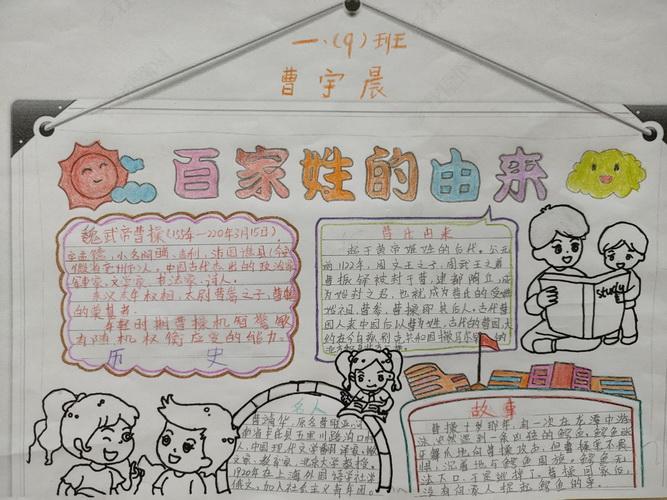 一、(9)班
曹宇晨
百家姓的由来
魏武帝曹操(155年—220年3月15日),
字孟德,小名阿瞒,吉利,沛国谯县(今
安徽省亳州市)人,中国古代杰出的政治家
军事家,文学家,书法家,诗人。
东汉末年权相,太尉曹嵩之子,曹魏
的奠基者。
年轻时期曹操机智警敏
有随机权衡应变的能力。
历 史
曹氏由来
起于黄帝
的后代。公元
前1122年,周文王之子,周武王之弟
曹振铎被封于曹,建都陶丘,
也就成为曹氏的受姓
始祖,曹参,曹操即其后人。古代曹
国人亡国后以曹为姓,古代的曹国,大
study
名人
曹靖华,原名曹联亚,河
南省卢氏县五里川路沟口的
人,中国现代文学翻译家,散
文家,教育家,北京大学教授。
1920年在上海外国语学社学
俄文,加入社会主义青年团。
故事
曹操十岁那年,有一次在龙潭中游
泳,突然遇到一条凶猛的鳄鱼,鳄鱼张
牙舞爪地向曹操攻击,但曹操毫不畏
惧,沉着地与鳄鱼周旋。鳄鱼无
法下口,于是逃掉了。曹操回家后,
没有向家人提起鳄鱼的事。